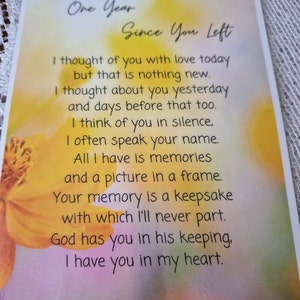 One Year
Since You Left
I thought of you with love today
but that is nothing new.
I thought about you yesterday
and days before that too.
I think of you in silence,
I often speak your name.
All I have is memories
and a picture in a frame.
Your memory is a keepsake
with which I'll never part.
God has you in his keeping,
I have you in my heart.